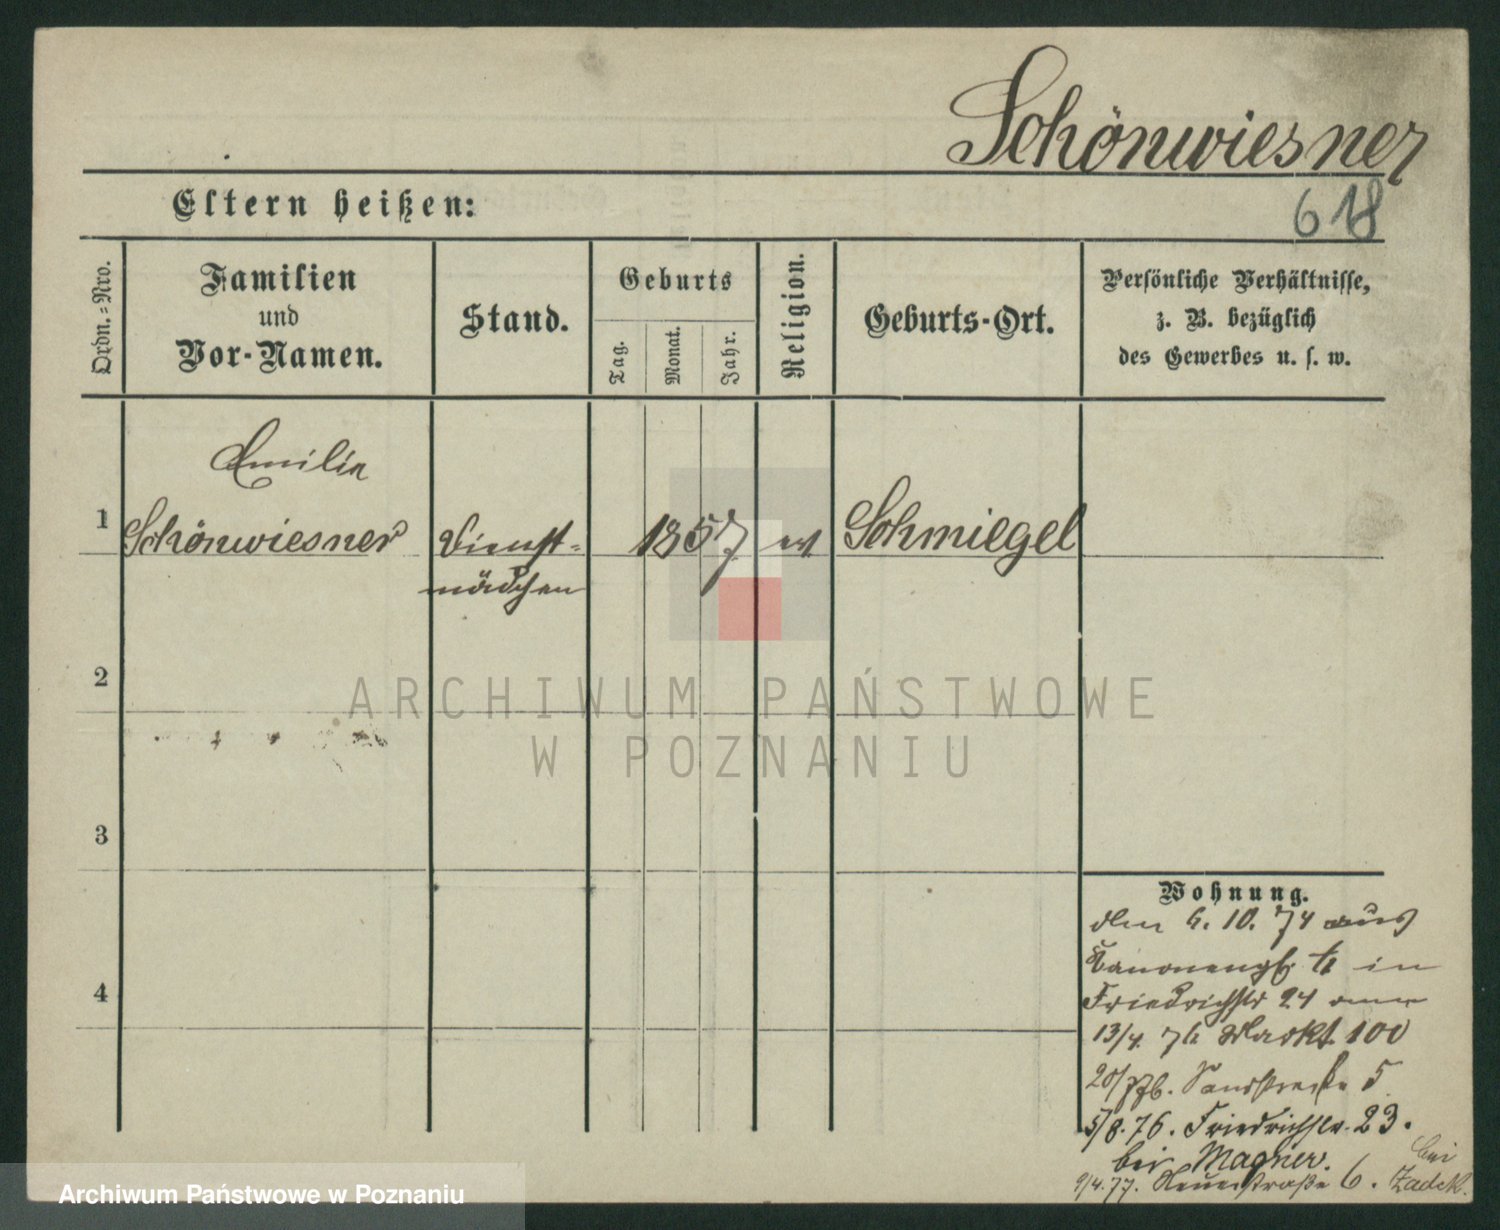 Schönwiesner
Eltern heißen:
618
Ordn.=Nro.
Familien
und
Vor-Namen.
Stand.
Geburts
Tag.
Monat.
Jahr.
Religion.
Geburts-Ort.
Persönliche Verhältnisse,
z. B. bezüglich
des Gewerbes u. s. w.
Emilie
1
Schönwiesner
Dienst-
mädchen
1857
ev
Schmiegel
2
ARCHIWUM PAŃSTWOWE
W POZNANIU
3
4
Wohnung.
den 6. 10. 74 aus
in
Friedrichstr 24
13/4. 76 Markt 100
5
5/8.76. Friedrichstr. 23.
bei Magner.
9/4.77. Neuestraße 6. bei Zadek.
Archiwum Państwowe w Poznaniu